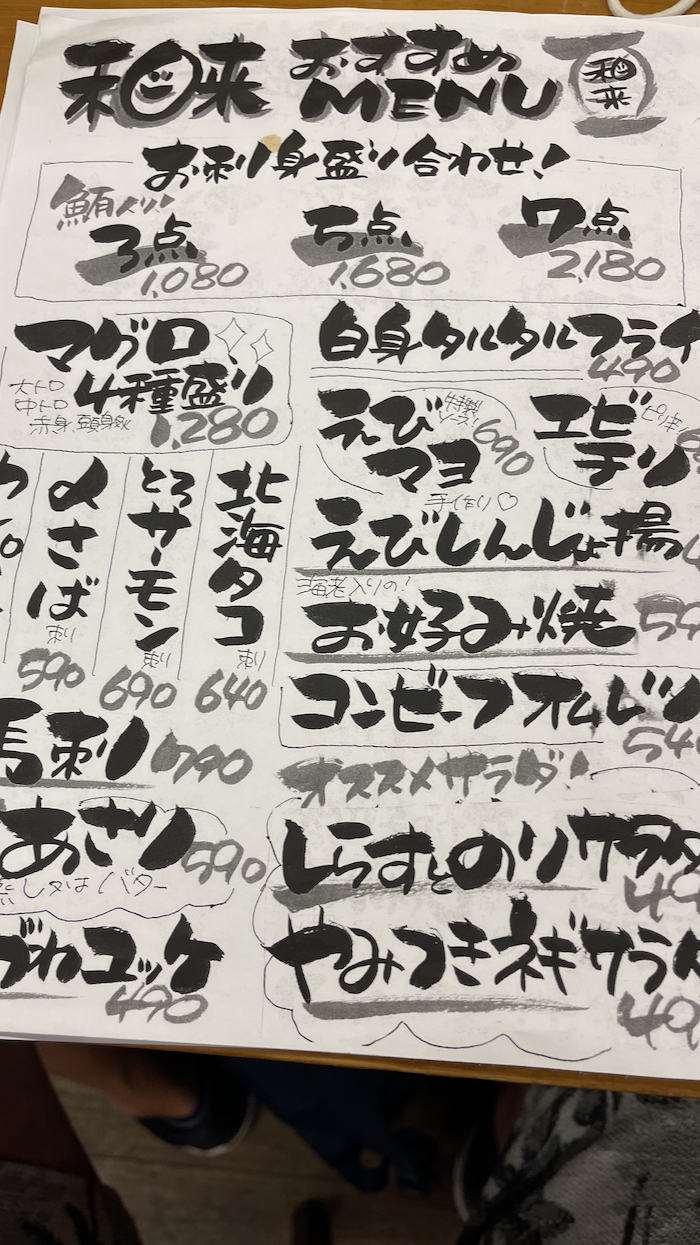 おすすめ
MENU
お刺り身盛り合わせ!
鮪入り!
3点 5点 7点
1,080 1,680 2,180
マグロ
4種盛り
大トロ
中トロ
赤身、頭身
1,280
白身タルタルフライ
490
えび
マヨ
特製
ソース!
690
エビ
チリ
ピリ辛
手作り♡
えびしんじょ揚
海老入りの!
お好み焼
コンビーフオムレツ
北海タコ
刺り
640
とろサーモン
刺り
690
〆さば
刺り
590
馬刺り 790
あさり 590
蒸し又はバター
ユッケ
490
オススメサラダ!
しらすとのりサラダ
やみつきネギサラダ